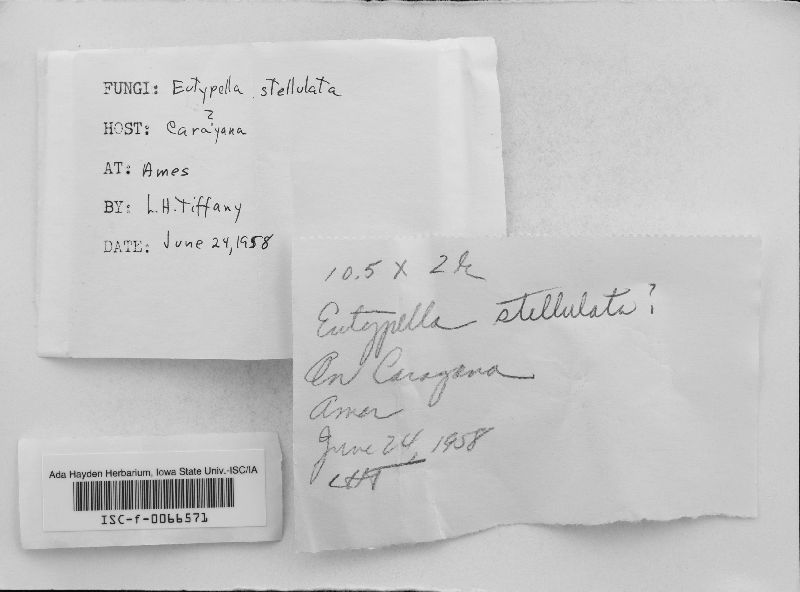 FUNGI: Eutypella stellulata
?
HOST: Carayana
AT: Ames
BY: L.H. Tiffany
DATE: June 24, 1958
10.5 X 2 μ
Eutypella stellulata?
On Caragana
Ames
June 24, 1958
LHT
Ada Hayden Herbarium, Iowa State Univ.-ISC/IA
ISC-f-0066571